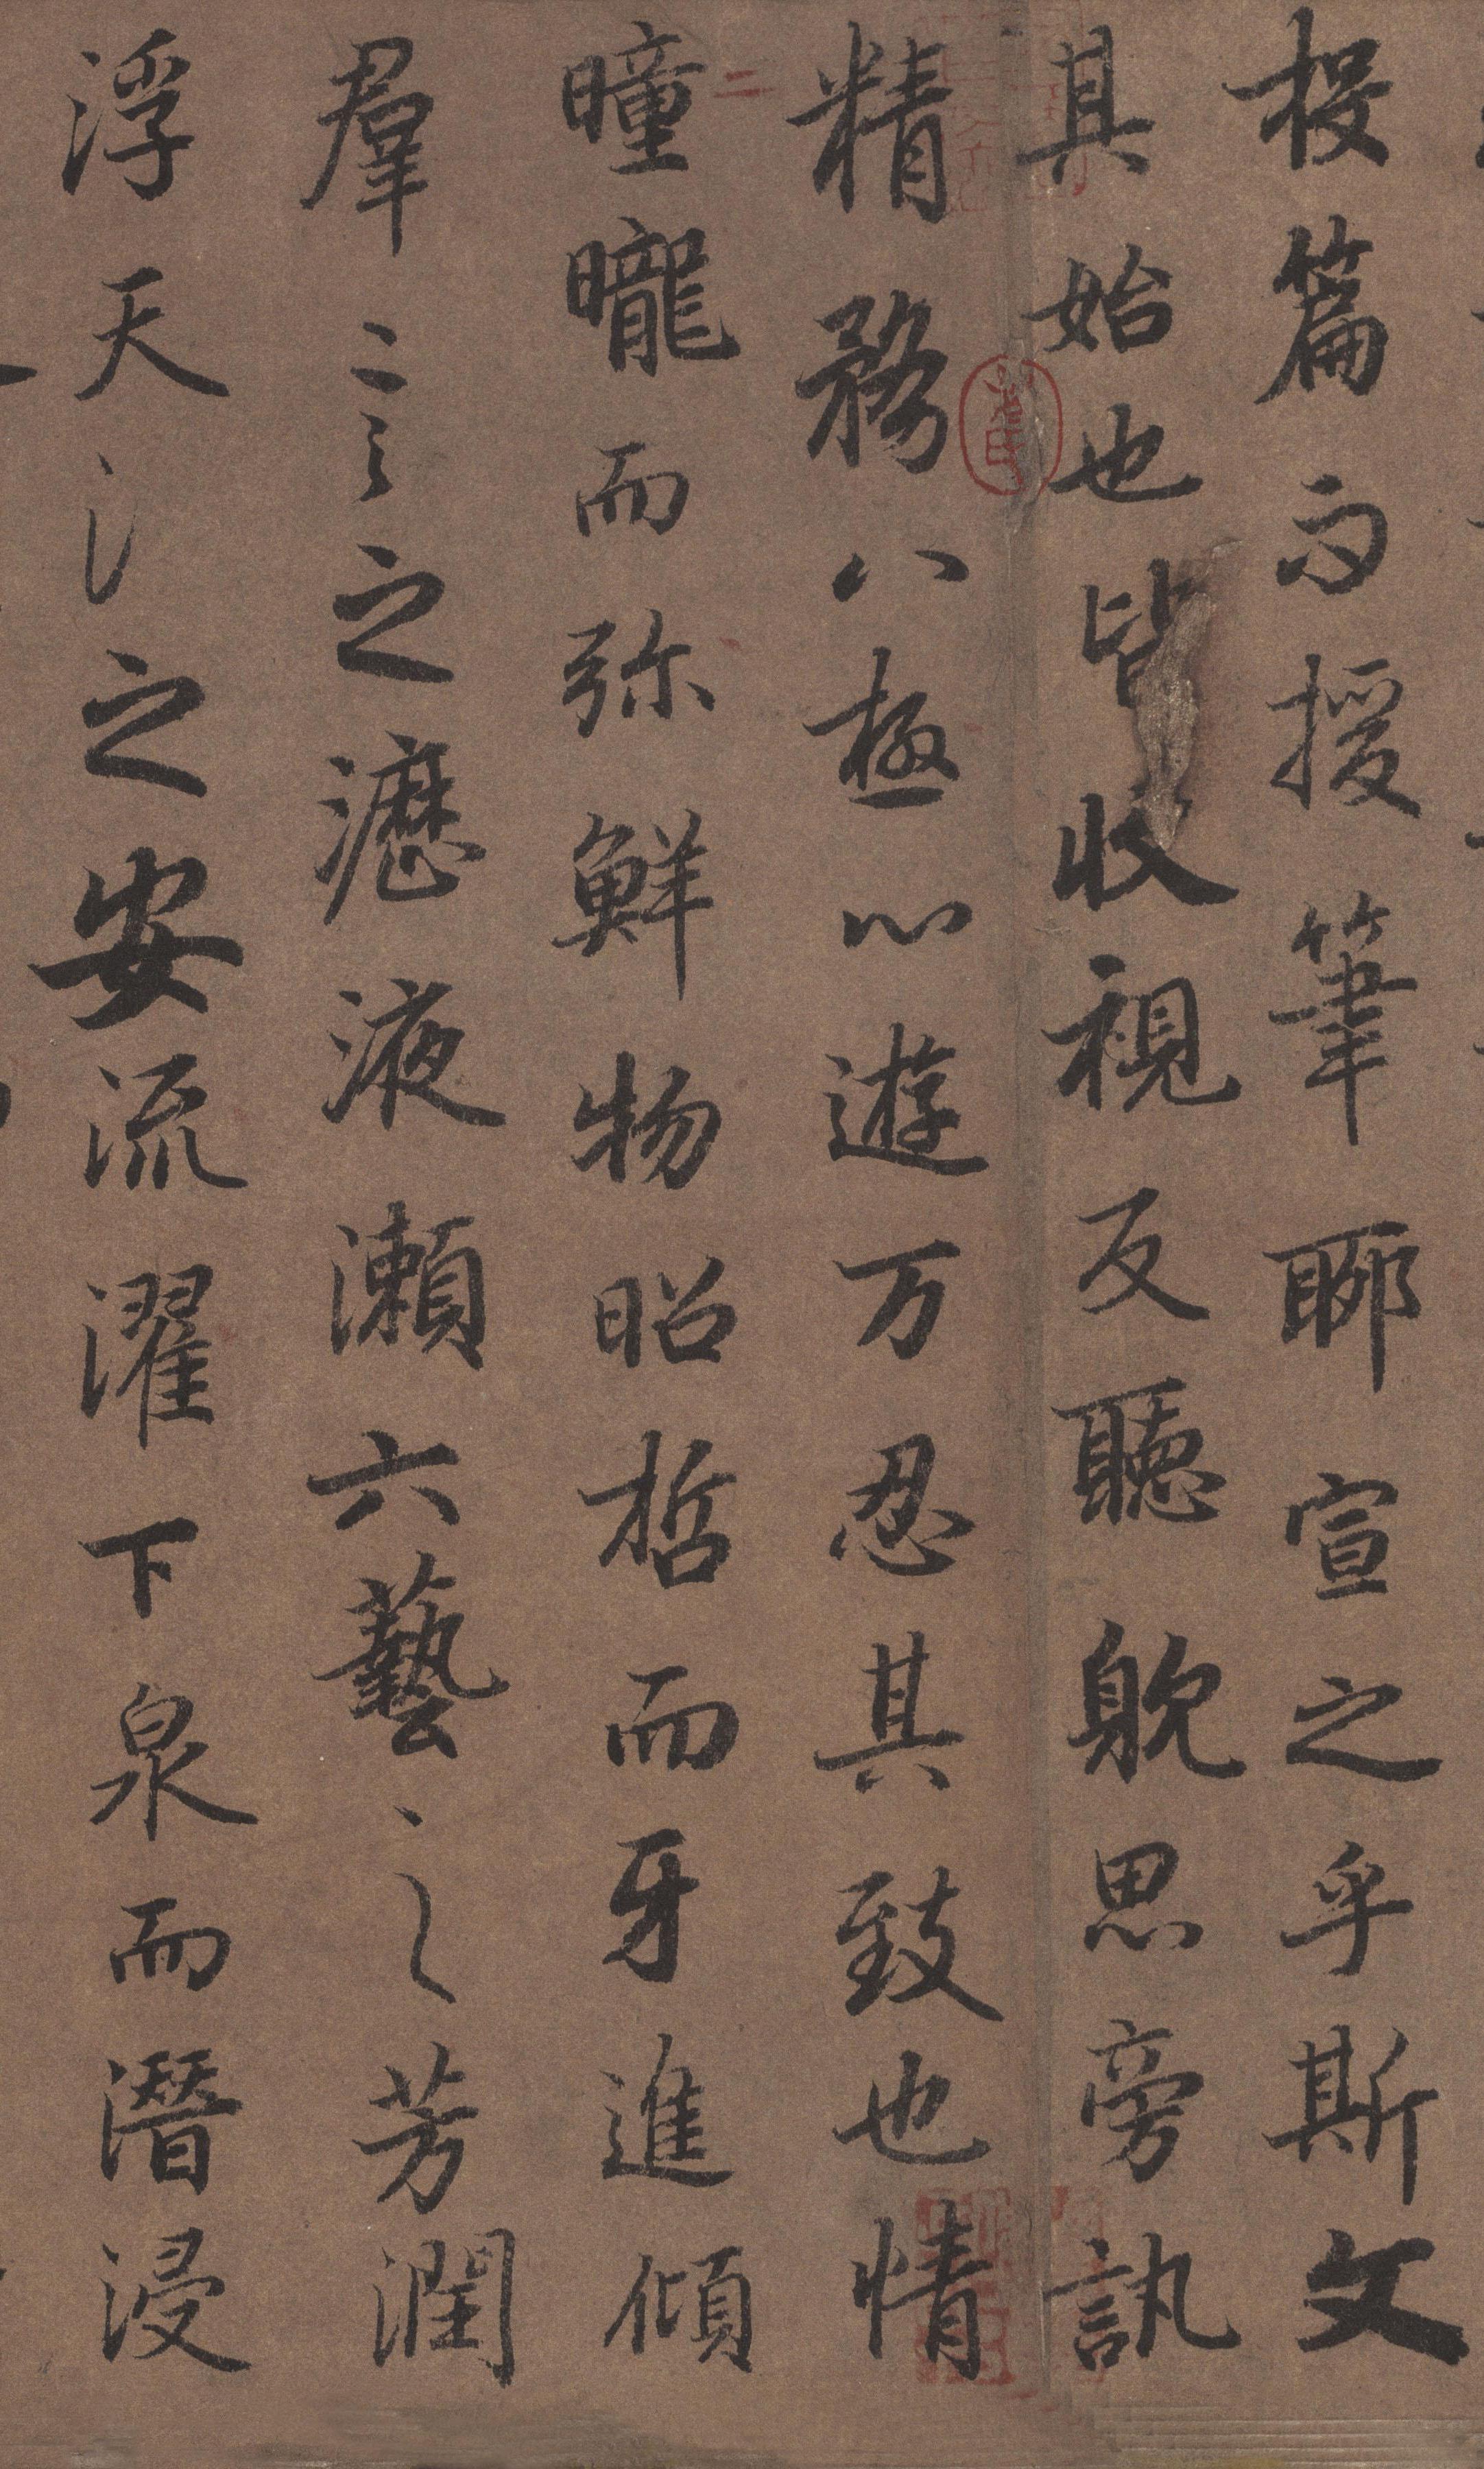 投篇而援筆聊宣之乎斯文
其始也皆收視反聽躭思旁訊
精務八極心遊万忍其致也情
曈曨而弥鮮物昭哲而牙進傾
羣言之瀝液瀨六藝之芳潤
浮天之安流濯下泉而潛浸